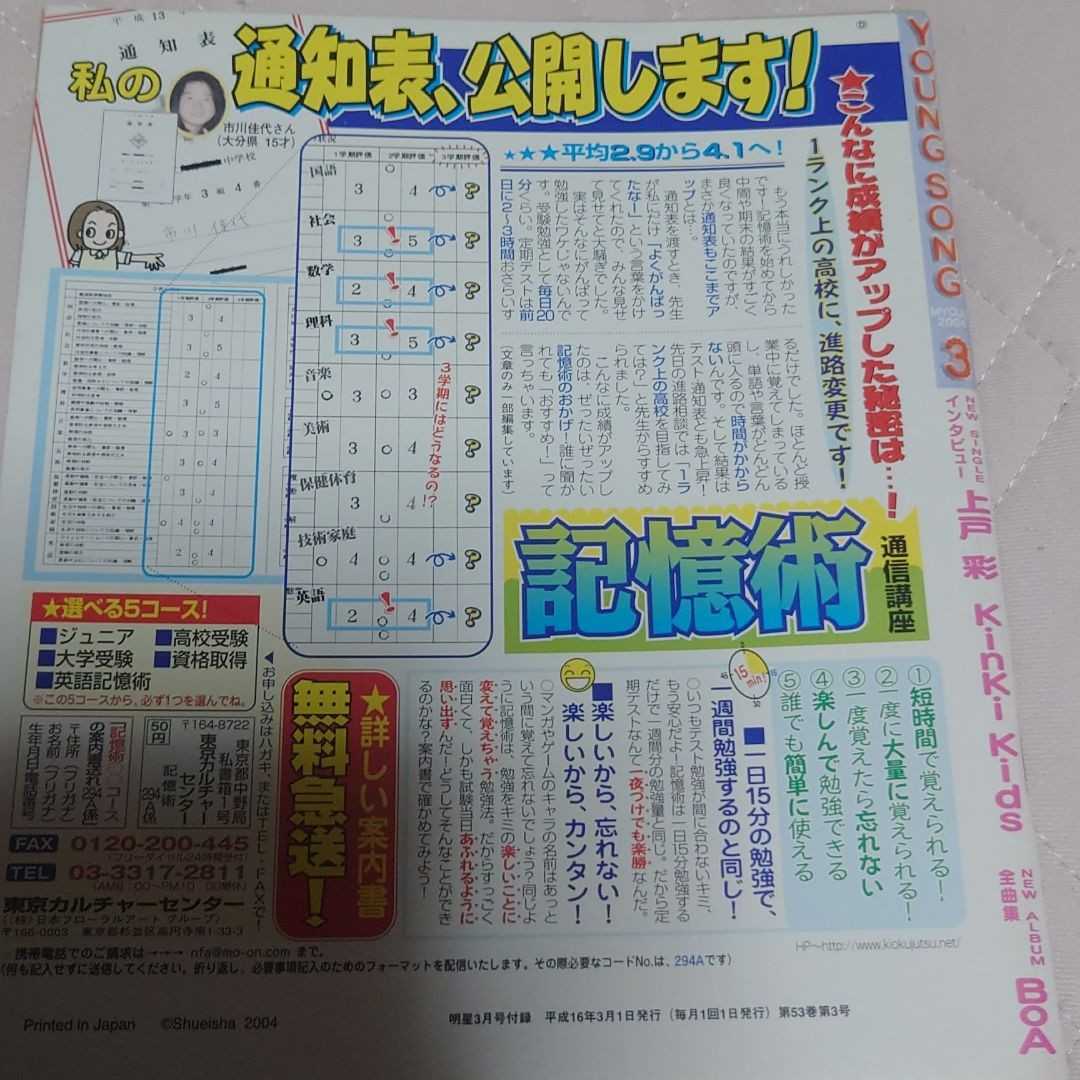 平成13年
通知表
私の
通知表、公開します!
市川佳代さん
(大分県 15才)
中学校
学年3組4番
市川佳代
★こんなに成績がアップした秘密は…!
1ランク上の高校に、進路変更です!
★★★平均2.9から4.1へ!
もう本当にうれしかった
です!記憶術を始めてから
中間や期末の結果がすごく
良くなっていたのですが、
まさか通知表もここまでア
ップとは…。
通知表を渡すとき、先生
が私にだけ「よくがんばっ
たなー」という言葉をかけ
てくれたので、みんな見せ
て見せてと大騒ぎでした。
実はそんなにがんばって
勉強したワケじゃないんで
す。受験勉強として毎日20
分くらい。定期テストは前
日に2~3時間おさらいす
るだけでした。ほとんど授
業中に覚えてしまっている
し、単語や言葉がどんどん
頭に入るので時間がかから
ないんです。そして結果は
テスト、通知表とも急上昇!
先日の進路相談では「1ラ
ンク上の高校を目指してみ
ては?」と先生からすすめ
られました。
こんなに成績がアップし
たのは、ぜったいぜったい
記憶術のおかげ!誰に聞か
れても「おすすめ!」って
言っちゃいます。
(文章のみ一部編集しています)
1学期評価 2学期評価 3学期評価
国語 3 4 ?
社会 3 5 ?
数学 2 4 ?
理科 3 5 ?
音楽 3 3 ?
美術 4 4 ?
保健体育 3 4 ?
技術家庭 4 4 ?
英語 2 4 ?
3学期にはどうなるの!?
記憶術
通信講座
①短時間で覚えられる!
②一度に大量に覚えられる!
③一度覚えたら忘れない
④楽しんで勉強できる
⑤誰でも簡単に使える
15min!
■一日15分の勉強で、
一週間勉強するのと同じ!
○いつもテスト勉強が間に合わないキミ、
もう安心だよ!記憶術は一日15分勉強する
だけで一週間分の勉強量と同じ。だから定
期テストなんて一夜づけでも楽勝なんだ。
■楽しいから、忘れない!
楽しいから、カンタン!
○マンガやゲームのキャラの名前はあっと
いう間に覚えて忘れないでしょう?同じよ
うに記憶術は、勉強をキミの楽しいことに
変えて覚えちゃう勉強法。だからすっごく
面白くて、しかも試験当日あふれるように
思い出すんだ!どうしてそんなことができ
るのかな?案内書で確かめてみよう!
★選べる5コース!
■ジュニア ■高校受験
■大学受験 ■資格取得
■英語記憶術
※この5コースから、必ず1つを選んでね。
★詳しい案内書
無料急送!
▼お申し込みはハガキ、またはTEL・FAXで!
50円
〒164-8722
東京都中野局
私書箱1号
東京カルチャー
センター
記憶術
294A係
「記憶術○○コース
の案内書送れ294A係」
〒住所(フリガナ)
お名前(フリガナ)
生年月日・電話番号
FAX 0120-200-445
(フリーダイヤル24時間受付)
TEL 03-3317-2811
東京カルチャーセンター
[(株)日本フローラルアート グループ]
〒166-0003 東京都杉並区高円寺南1-33-3
HP~http://www.kiokujutsu.net/
※携帯電話でのご請求は→→→ nfa@mo-on.com まで。
(何も記入せずに送信してください。折り返し、必要事項記入のためのフォーマットを配信いたします。その際必要なコードNo.は、294Aです)
Printed in Japan ©Shueisha 2004
明星3月号付録 平成16年3月1日発行(毎月1回1日発行)第53巻第3号
YOUNG SONG
3
NEW SINGLE
インタビュー
上戸 彩
KinKi Kids
NEW ALBUM
全曲集
BoA